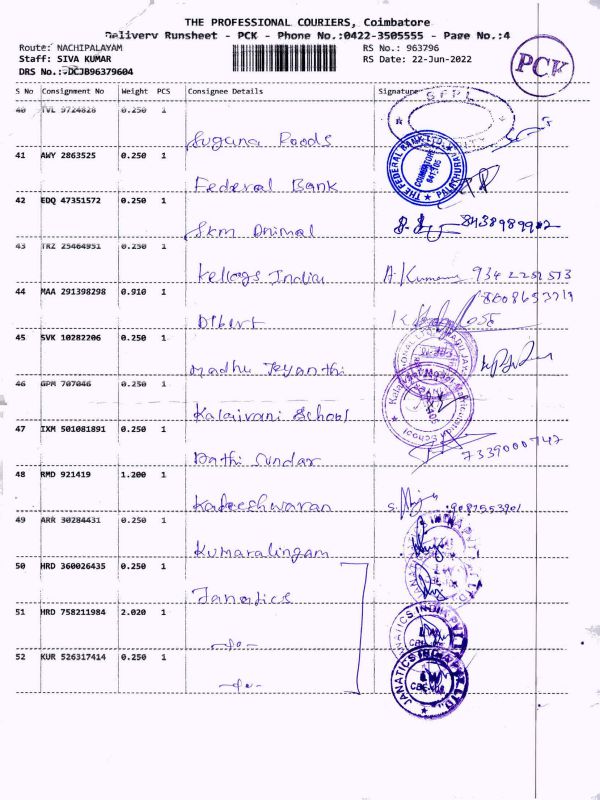 THE PROFESSIONAL COURIERS, Coimbatore
Delivery Runsheet - PCK - Phone No.:0422-3505555 - Page No.:4
Route: NACHIPALAYAM RS No.: 963796
Staff: SIVA KUMAR RS Date: 22-Jun-2022
DRS No.: DCJB96379604
PCK
S No Consignment No Weight PCS Consignee Details Signature
40 TVL 9724828 0.250 1 Suguna Foods
41 AWY 2863525 0.250 1 Federal Bank
THE FEDERAL BANK LTD. COIMBATORE
42 EDQ 47351572 0.250 1 Skm Animal 8438989902
43 TRZ 25464951 0.250 1 Kellogs India A. Kumar
44 MAA 291398298 0.910 1 Dibert
45 SVK 10282206 0.250 1 Madhu Jeyanthi
46 GPM 707046 0.250 1 Kalaivani School
47 IXM 501081891 0.250 1 Bathi Sundar 7339000742
48 RMD 921419 1.200 1 Kadeeshwaran
49 ARR 30284431 0.250 1 Kumaralingam
50 HRD 360026435 0.250 1 Janatics
51 HRD 758211984 2.020 1 -do-
52 KUR 526317414 0.250 1 -do-
JANATICS INDIA PVT LTD.